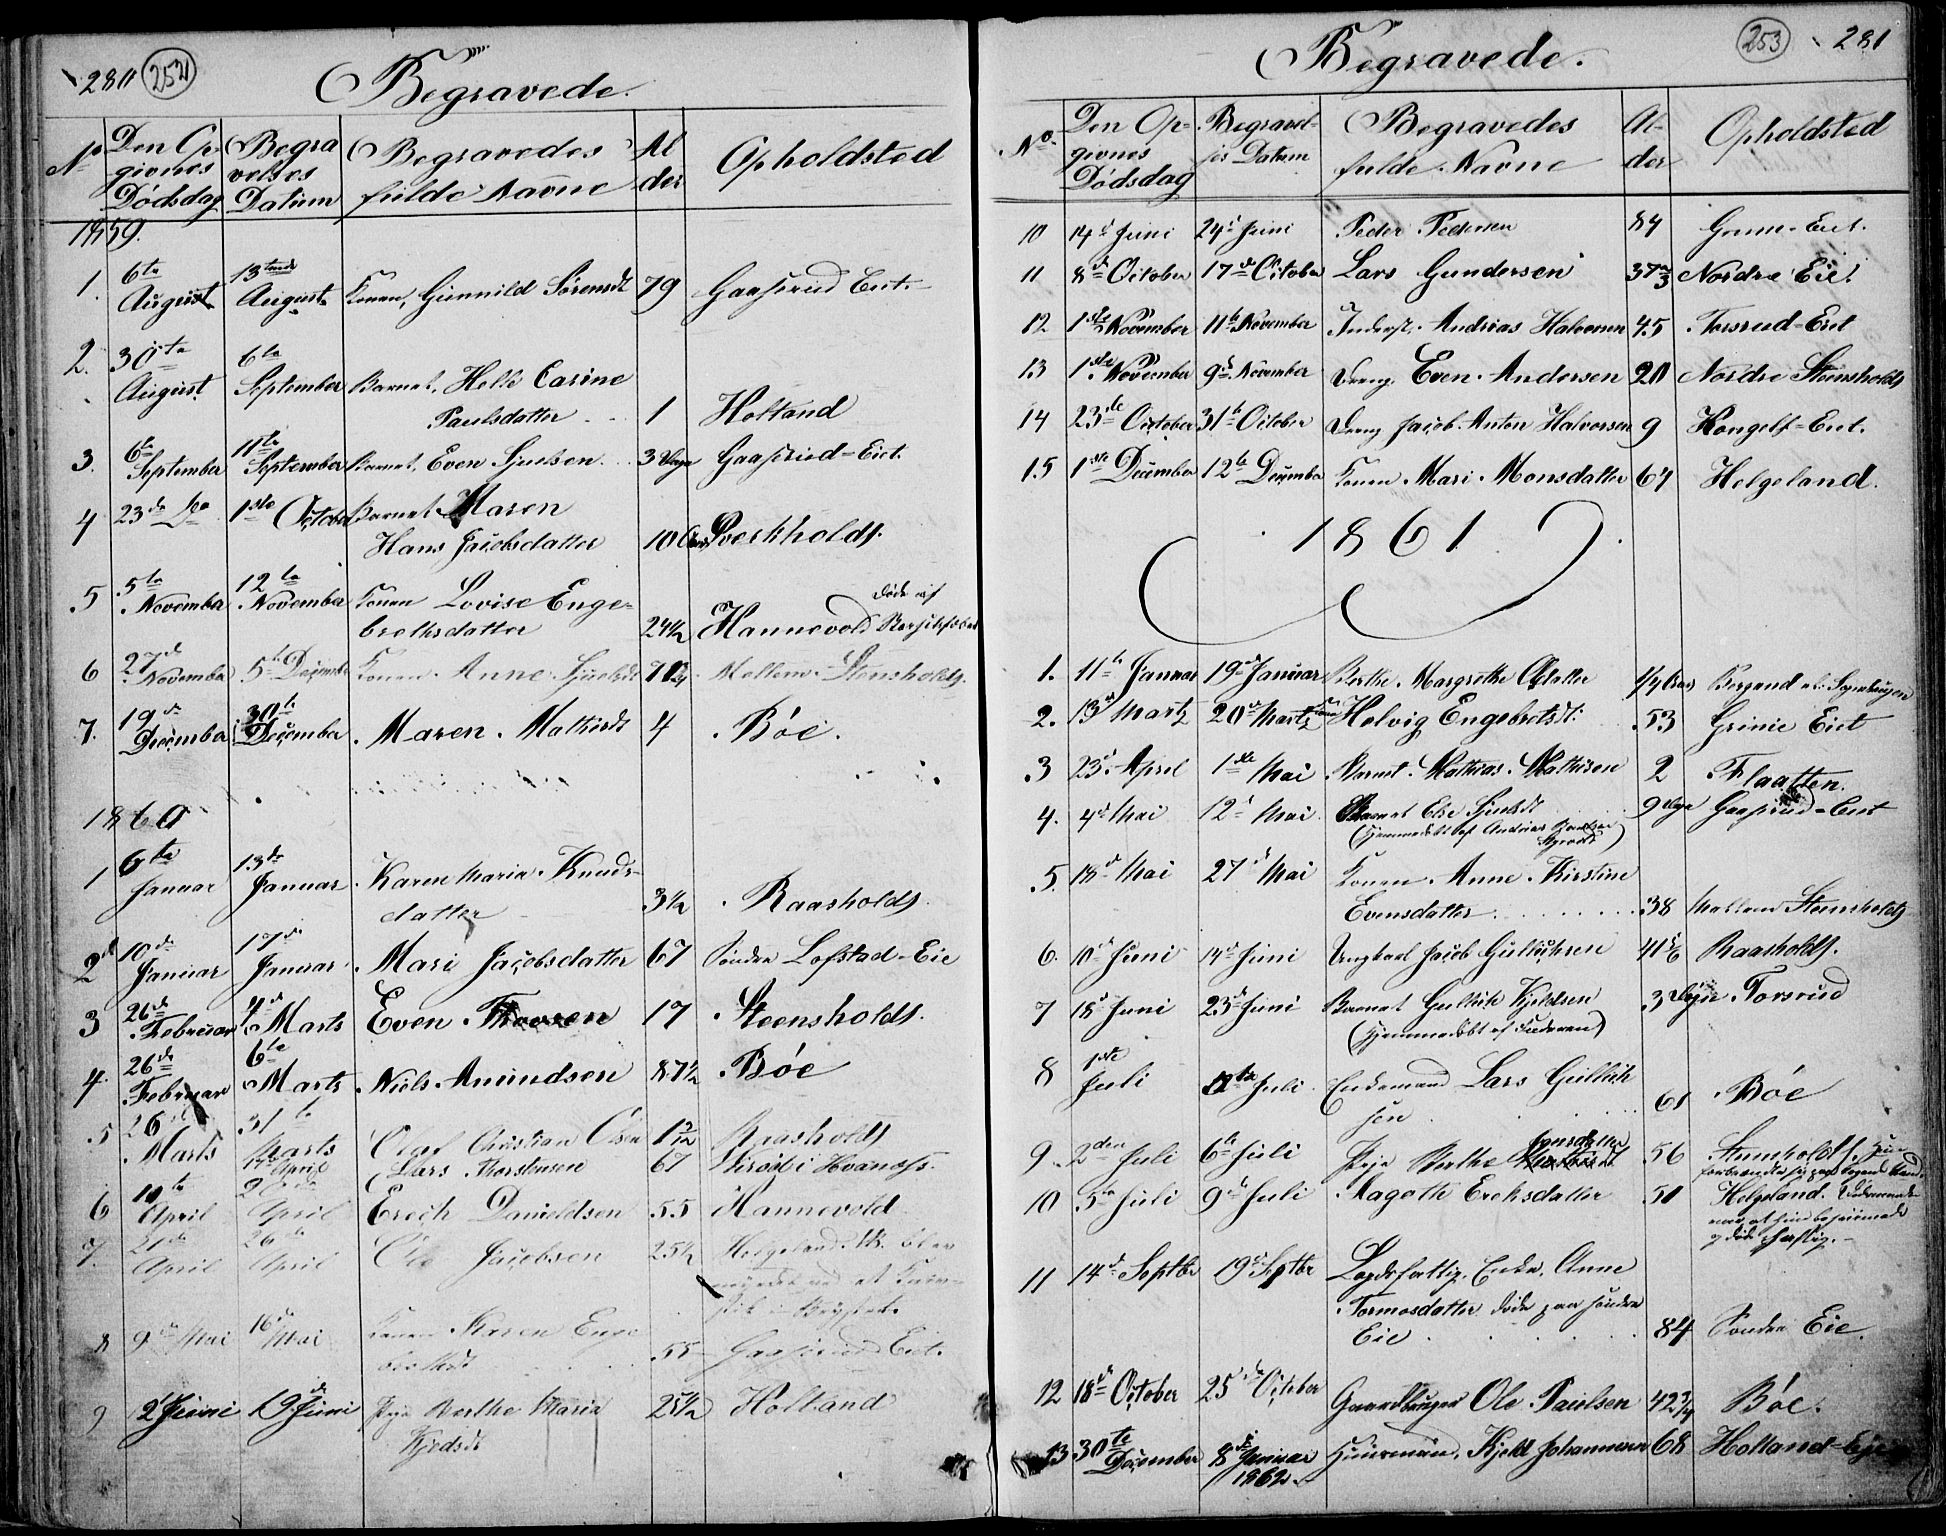 280 252
Begravede.
No Den Op- Begra Begravedes Al Opholdsted
givnes velses fulde Navne der
Dødsdag Datum
1859.
1. 6te 13tende
August August Konen, Gunnild Sørensdt 79 Gaasrud Eiet.
2. 30te 6te
August September Barnet, Helle Carine
Paulsdatter 1 Holtand
3. 6te 11te
September September Barnet, Even Sjulsen. 3 Uger Gaasrud-Eiet.
4 23de 1ste October Barnet Maren
Hans Jacobsdatter 10 Sverkholdt.
5 5te 12te
November November Konen Lovise Enge-
brethsdatter 24½ Hannevold Døde af
6 27de 5te December Konen Anne 71 Mellem-Stensholdt.
November
7. 19de 30te
December December Maren Mathisdt 4 Bøe.
1860
1 6te 13de
Januar Januar Karen Maria Knuds-
datter 3½ Raasholdt.
2 10de 17de
Januar Januar Mari Jacobsdatter 67 Søndre Lofstad-Eie
3 26de 4de
Februar Marts Even Thovsen 17 Steensholdt.
4. 26de 6te
Februar Marts Niels Amundsen 87½ Bøe
5 26de 31te
Marts Marts Olaf Christian Olsen Raasholdt
Lars Thorstensen 67
April
6 10te
April April Erich Danieldsen 55 Hannevold
7. 21de 26de
April April Ole Jacobsen 25½ Helgeland. NB. blev
8 9de Mai 16de
Mai Konen Karen Enge
55 Gaasrud Eiet.
9 2 Juni 19de Juni Pige Berthe Maria 25½ Holtand
Kjeldsdt
253 281
Begravede.
No. Den Op- Begravel- Begravedes Al- Opholdsted
givnes ses Datum fulde Navne der
Dødsdag
10 14de Juni 24de Juni Peder Pedersen 84 Grine-Eiet.
11 8de October 17de October Lars Gundersen 37⅔ Nordre Eie.
12 1ste November 11te November Inderst. Andreas Halvorsen 45 Torsrud-Eiet
13 1ste November 9de November Dreng. Even Andersen 20 Nordre Steensholdt
14 23de October 31te October Dreng Jacob Anton Halvorsen 9 Kongelf-Eiet.
15 1ste December 12te December Konen Mari Monsdatter 67 Helgeland.
1861
1. 11te Januar 19de Januar Berthe Margrethe Olsdatter
2. 13de Martz 20de Martz Konen Helvig Engebretsdt: 53 Grinie Eiet
3 23de April 1ste Mai Barnet Mathias Mathisen 2 Flaatten.
4. 4de Mai 12te Mai Barnet Else Sjulsdt 9 Uger Gaasrud-Eiet
(Hjemmedøbt af Andreas
5. 18de Mai 27de Mai Konen Anne Kirstine
Evensdatter 38 Mellem Steensholdt
6. 10de Juni 14de Juni Ungkarl Jacob Gulliksen 41 Raasholdt.
7 18de Juni 23de Juni Barnet Gullik Kjeldsen 3 Uger Torsrud
(Hjemmedøbt af Faderen)
8 1ste
Juli 12te Juli Enkemand Lars Gullik
sen 61 Bøe
9. 2den Juli 6te Juli Pige Berthe 56 Steensholdt, Hun
forbrændte sig
10 5te Juli 9de Juli Magathe Ereksdatter 50 Helgeland.
11 14de Septbr 19de Septbr Lægdsfattig, Enke, Anne
Tormosdatter døde paa søndre
Eie 84 Søndre Eie.
12 18de October 25de October Gaardbruger Ole Paulsen 42¾ Bøe.
13 30te
December 8de Januar Huusmand, Kjeld Johannesen 68 Holtand-Eje
1862